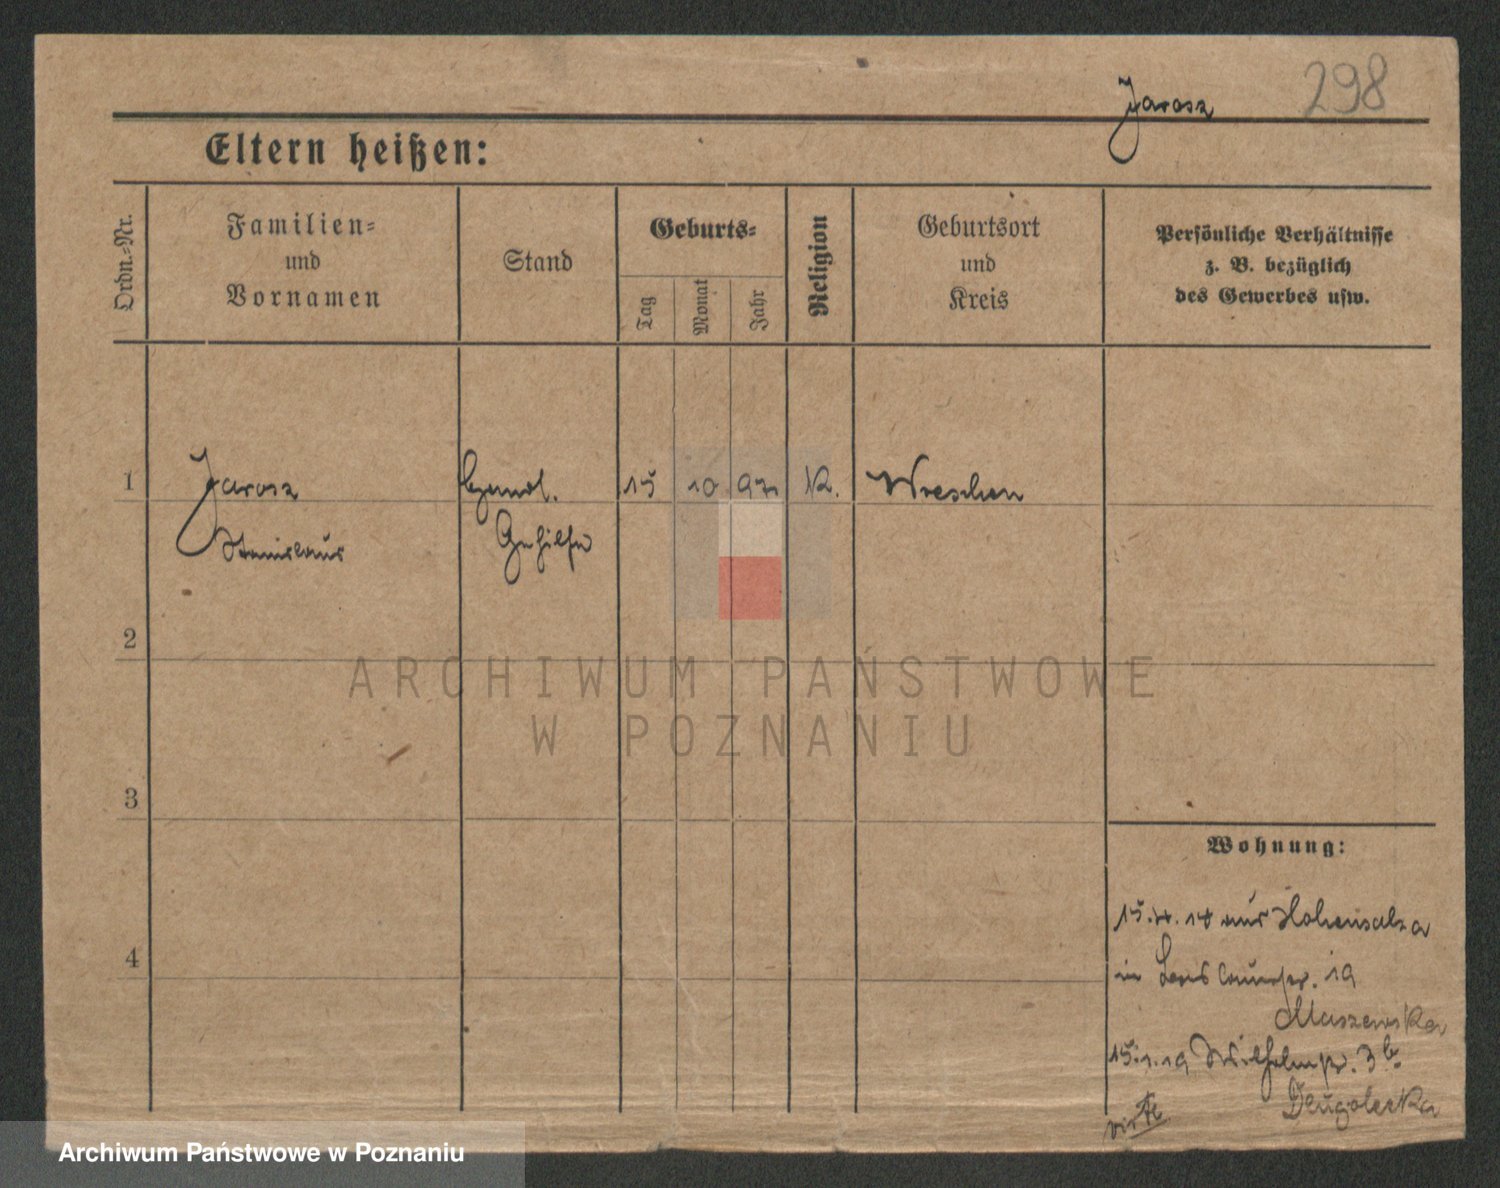 Jarosz 298
Eltern heißen:
Ordn.-Nr.
Familien-
und
Vornamen
Stand
Geburts-
Tag
Monat
Jahr
Religion
Geburtsort
und
Kreis
Persönliche Verhältnisse
z. B. bezüglich
des Gewerbes usw.
1 Jarosz Handl. 15 10 97 K. Wreschen
Stanislaus Gehilfe
2
ARCHIWUM PAŃSTWOWE
W POZNANIU
3
Wohnung:
aus Hohensalza
4
in 19
Maszewska
15.1.19 Wilhelmstr. 3b
Długolecka
Archiwum Państwowe w Poznaniu